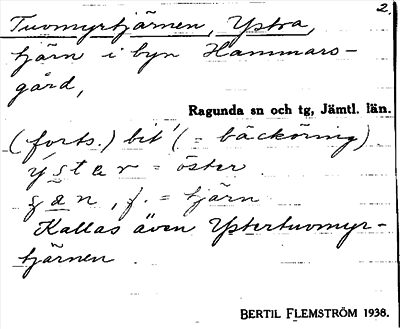 2.
Tuvomyrtjärnen, Ystra,
tjärn i byn Hammars-
gård,
Ragunda sn och tg, Jämtl. län.
(forts.) bit' (= bäcköring)
ýstər = öster
ʒan, f. = tjärn
Kallas även Ystertuvomyr-
tjärnen.
BERTIL FLEMSTRÖM 1938.